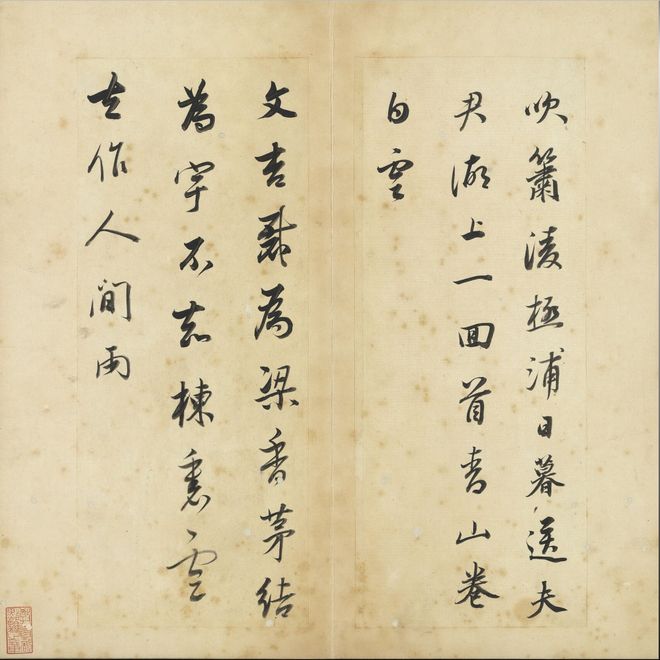 吹簫凌極浦日暮送夫
君湖上一回首青山卷
白雲
文杏裁為梁香茅結
為宇不知棟裏雲
去作人間雨